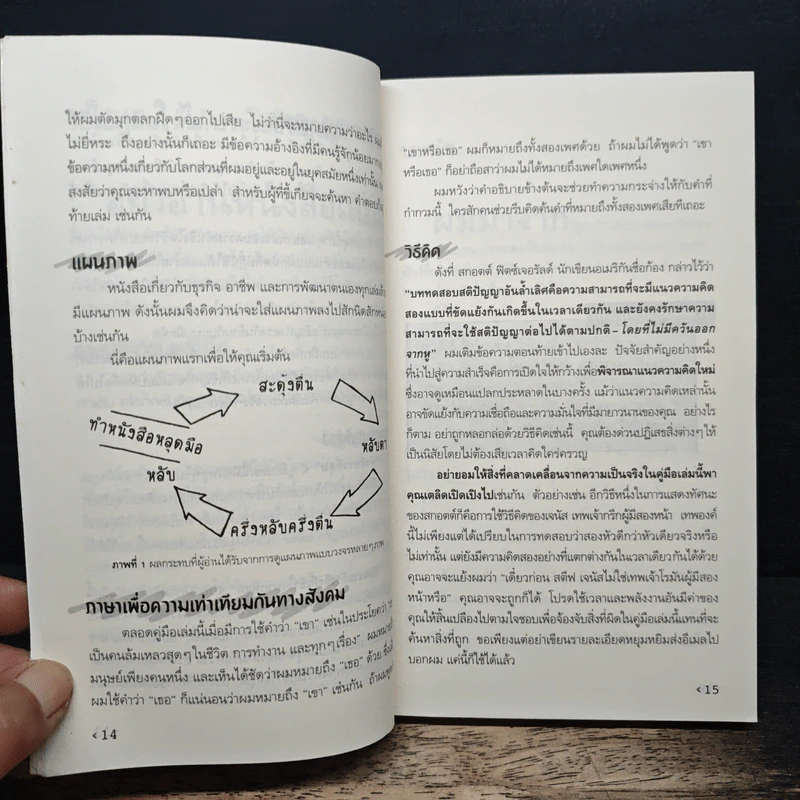 ให้ผมตัดมุกตลกฝืดๆออกไปเสีย ไม่ว่านี่จะหมายความว่าอะไร
ไม่ยี่หระ ถึงอย่างนั้นก็เถอะ มีข้อความอ้างอิงที่มีคนรู้จักน้อยมาก
ข้อความหนึ่งเกี่ยวกับโลกส่วนที่ผมอยู่และอยู่ในยุคสมัยหนึ่งเท่านั้น
สงสัยว่าคุณจะหาพบหรือเปล่า สำหรับผู้ที่ขี้เกียจจะค้นหา คำตอบ
ท้ายเล่ม เช่นกัน
แผนภาพ
หนังสือเกี่ยวกับธุรกิจ อาชีพ และการพัฒนาตนเองทุกเล่ม
มีแผนภาพ ดังนั้นผมจึงคิดว่าน่าจะใส่แผนภาพลงไปสักนิดสักหน่อย
บ้างเช่นกัน
นี่คือแผนภาพแรกเพื่อให้คุณเริ่มต้น
สะดุ้งตื่น
ทำหนังสือหลุดมือ
หลับตา
หลับ
ครึ่งหลับครึ่งตื่น
ภาพที่ 1 ผลกระทบที่ผู้อ่านได้รับจากการดูแผนภาพแบบวงจรหลายๆภาพ
ภาษาเพื่อความเท่าเทียมกันทางสังคม
ตลอดคู่มือเล่มนี้เมื่อมีการใช้คำว่า "เขา" เช่นในประโยคว่า
เป็นคนล้มเหลวสุดๆในชีวิต การทำงาน และทุกๆเรื่อง" ผมหมาย
มนุษย์เพียงคนหนึ่ง และเห็นได้ชัดว่าผมหมายถึง "เธอ" ด้วย
ผมใช้คำว่า "เธอ" ก็แน่นอนว่าผมหมายถึง "เขา" เช่นกัน ถ้าผม
< 14
"เขาหรือเธอ" ผมก็หมายถึงทั้งสองเพศด้วย ถ้าผมไม่ได้พูดว่า "เขา
หรือเธอ" ก็อย่าถือสาว่าผมไม่ได้หมายถึงเพศใดเพศหนึ่ง
ผมหวังว่าคำอธิบายข้างต้นจะช่วยทำความกระจ่างให้กับคำที่
กำกวมนี้ ใครสักคนช่วยรีบคิดค้นคำที่หมายถึงทั้งสองเพศเสียทีเถอะ
วิธีคิด
ดังที่ สกอตต์ ฟิตซ์เจอรัลด์ นักเขียนอเมริกันชื่อก้อง กล่าวไว้ว่า
"บททดสอบสติปัญญาอันล้ำเลิศคือความสามารถที่จะมีแนวความคิด
สองแบบที่ขัดแย้งกันเกิดขึ้นในเวลาเดียวกัน และยังคงรักษาความ
สามารถที่จะใช้สติปัญญาต่อไปได้ตามปกติ – โดยที่ไม่มีควันออก
จากหู" ผมเติมข้อความตอนท้ายเข้าไปเองละ ปัจจัยสำคัญอย่างหนึ่ง
ที่นำไปสู่ความสำเร็จคือการเปิดใจให้กว้างเพื่อพิจารณาแนวความคิดใหม่
ซึ่งอาจดูเหมือนแปลกประหลาดในบางครั้ง แม้ว่าแนวความคิดเหล่านั้น
อาจขัดแย้งกับความเชื่อถือและความมั่นใจที่มีมายาวนานของคุณ อย่างไร
ก็ตาม อย่าถูกหลอกล่อด้วยวิธีคิดเช่นนี้ คุณต้องด่วนปฏิเสธสิ่งต่างๆให้
เป็นนิสัยโดยไม่ต้องเสียเวลาคิดใคร่ครวญ
อย่ายอมให้สิ่งที่คลาดเคลื่อนจากความเป็นจริงในคู่มือเล่มนี้พา
คุณเตลิดเปิดเปิงไปเช่นกัน ตัวอย่างเช่น อีกวิธีหนึ่งในการแสดงทัศนะ
ของสกอตต์ก็คือการใช้วิธีคิดของเจนัส เทพเจ้ากรีกผู้มีสองหน้า เทพองค์
นี้ไม่เพียงแต่ได้เปรียบในการทดสอบว่าสองหัวดีกว่าหัวเดียวจริงหรือ
ไม่เท่านั้น แต่ยังมีความคิดสองอย่างที่แตกต่างกันในเวลาเดียวกันได้ด้วย
คุณอาจจะแย้งผมว่า "เดี๋ยวก่อน สตีฟ เจนัสไม่ใช่เทพเจ้าโรมันผู้มีสอง
หน้าหรือ" คุณอาจจะถูกก็ได้ โปรดใช้เวลาและพลังงานอันมีค่าของ
คุณให้สิ้นเปลืองไปตามใจชอบเพื่อจ้องจับสิ่งที่ผิดในคู่มือเล่มนี้แทนที่จะ
ค้นหาสิ่งที่ถูก ขอเพียงแต่อย่าเขียนรายละเอียดหยุมหยิมส่งอีเมลไป
บอกผม แค่นี้ก็ใช้ได้แล้ว
< 15